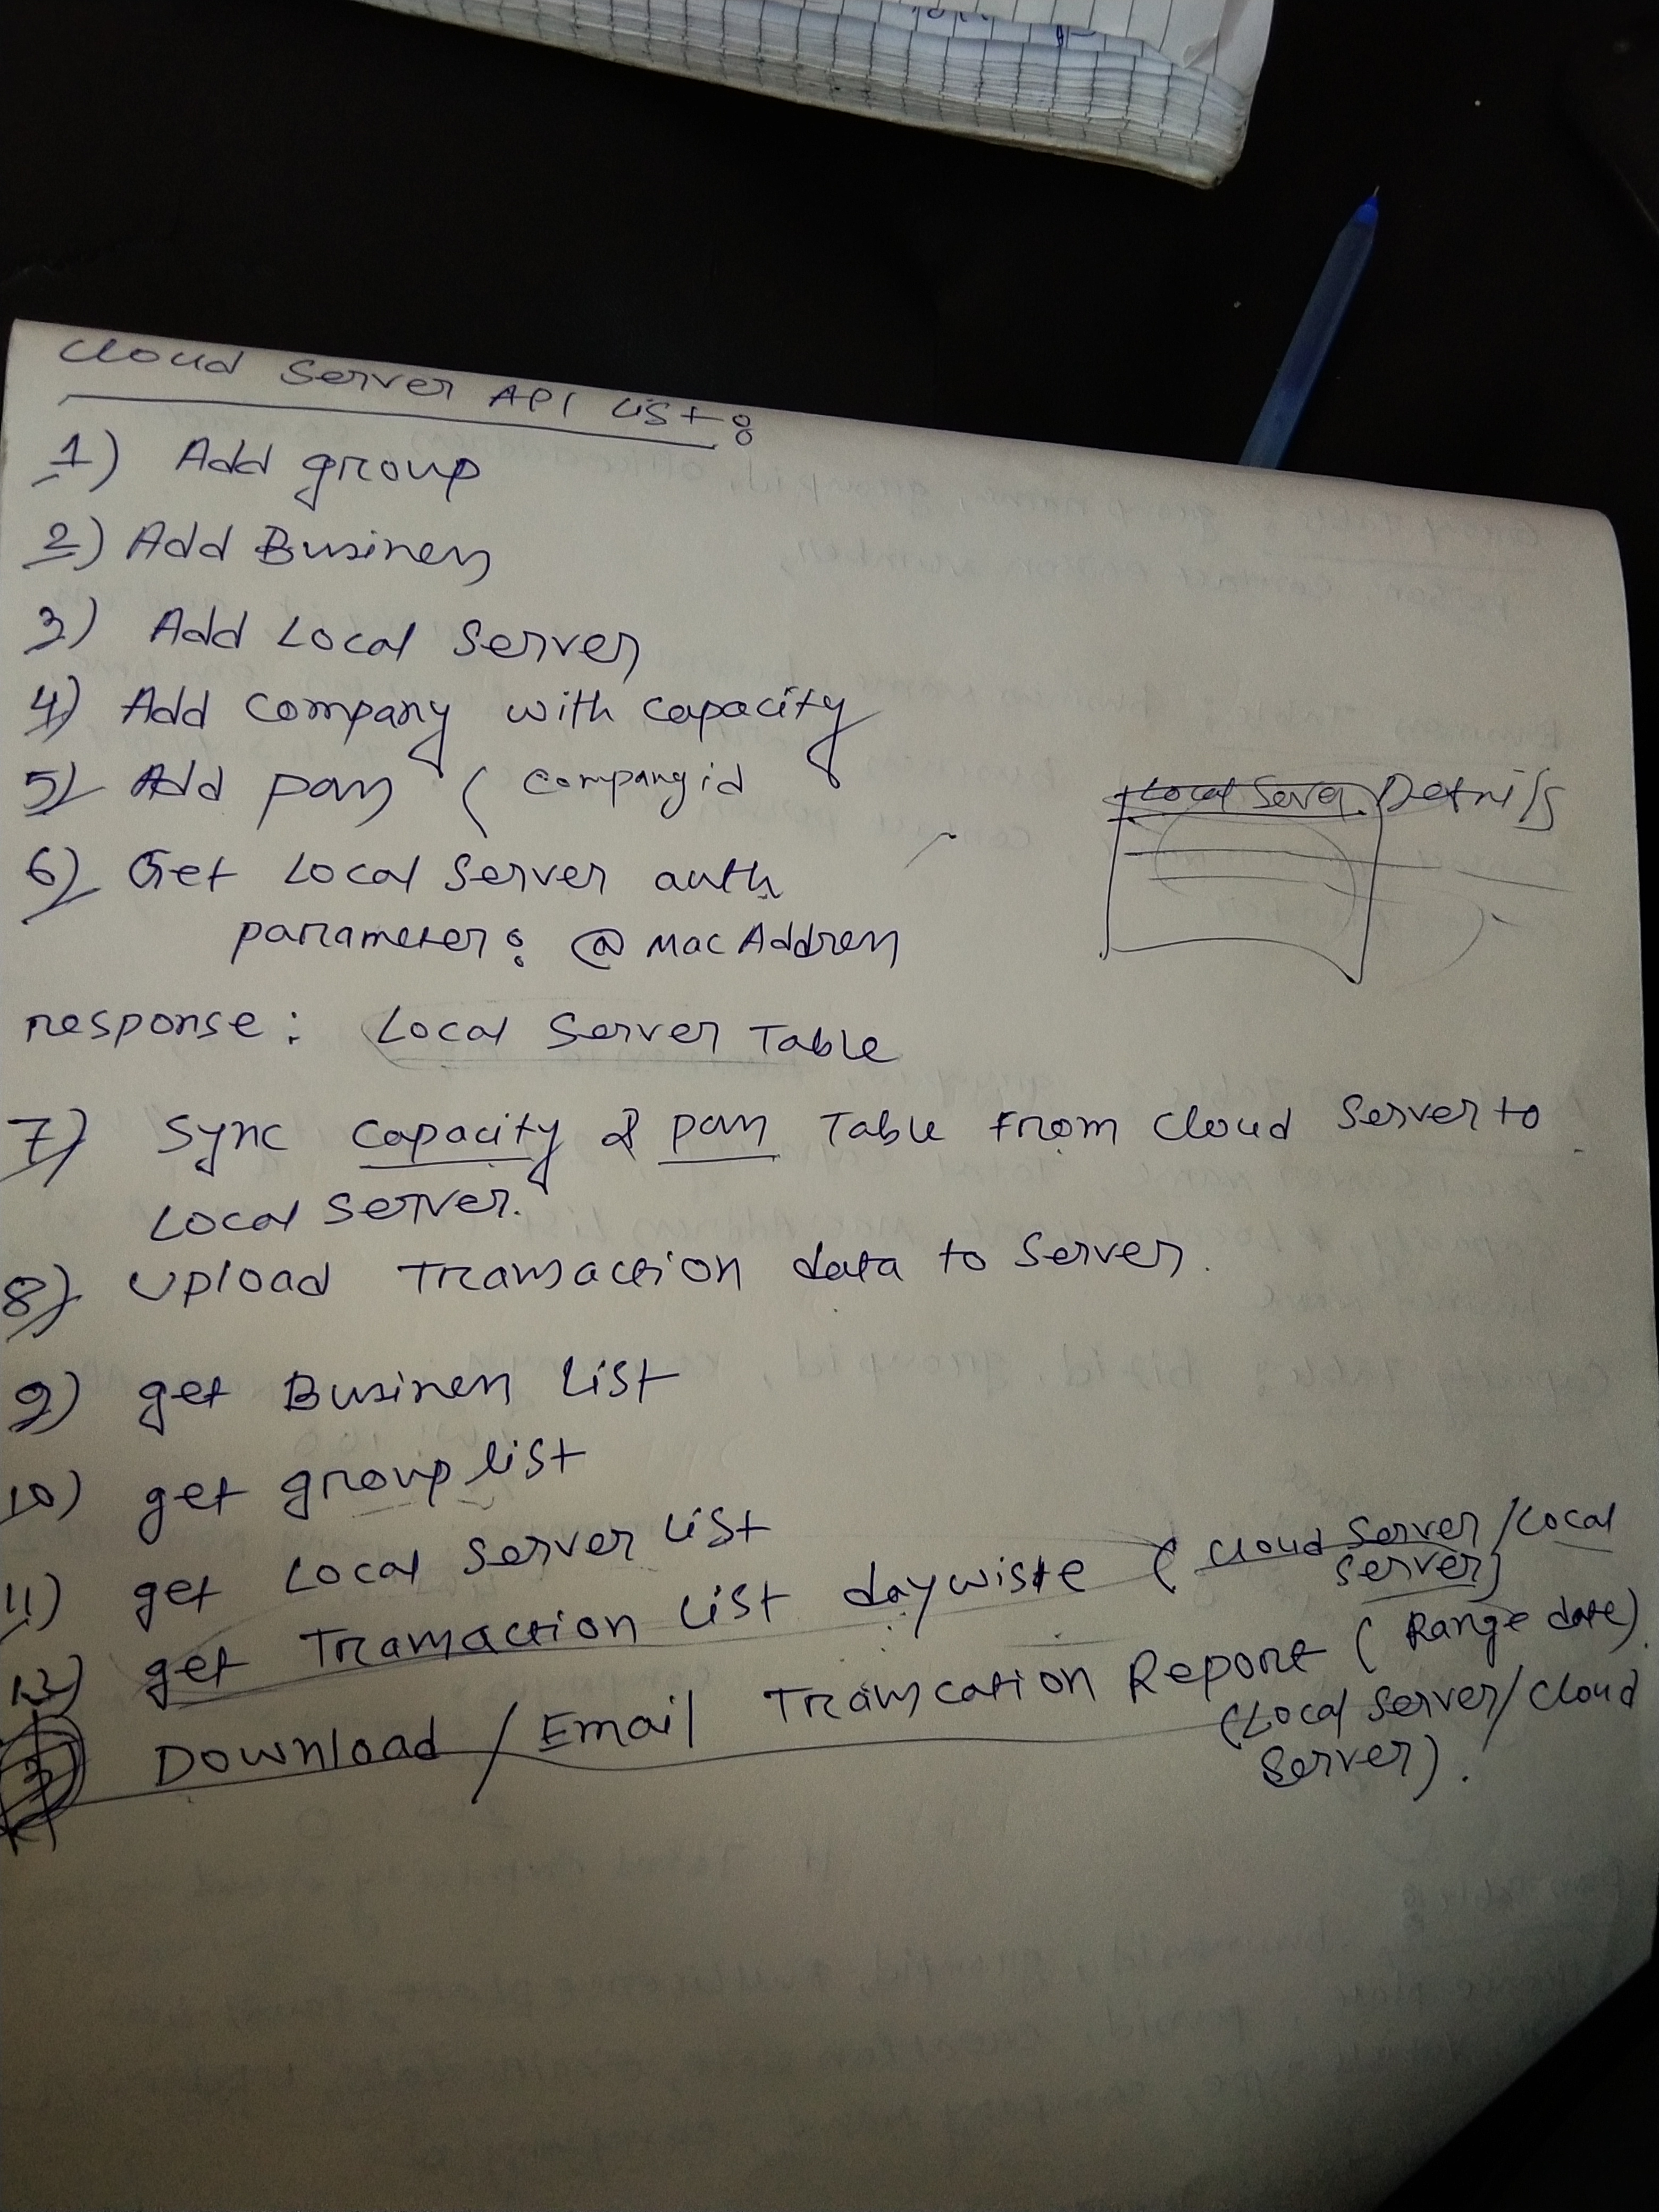 Cloud Server API List:
1) Add group
2) Add Business
3) Add Local Server
4) Add Company with capacity
5) Add pass ( Companyid
Local Server Details
6) Get Local Server auth
parameter: @ Mac Address
response: Local Server Table
7) Sync capacity & pass Table From Cloud Server to
Local Server.
8) Upload Transaction data to Server.
9) get Business List
10) get group list
11) get Local Server List
12) get Transaction List daywise ( Cloud Server / Local
Server)
Download / Email Transcation Report ( Range date).
(Local Server/ Cloud
Server).